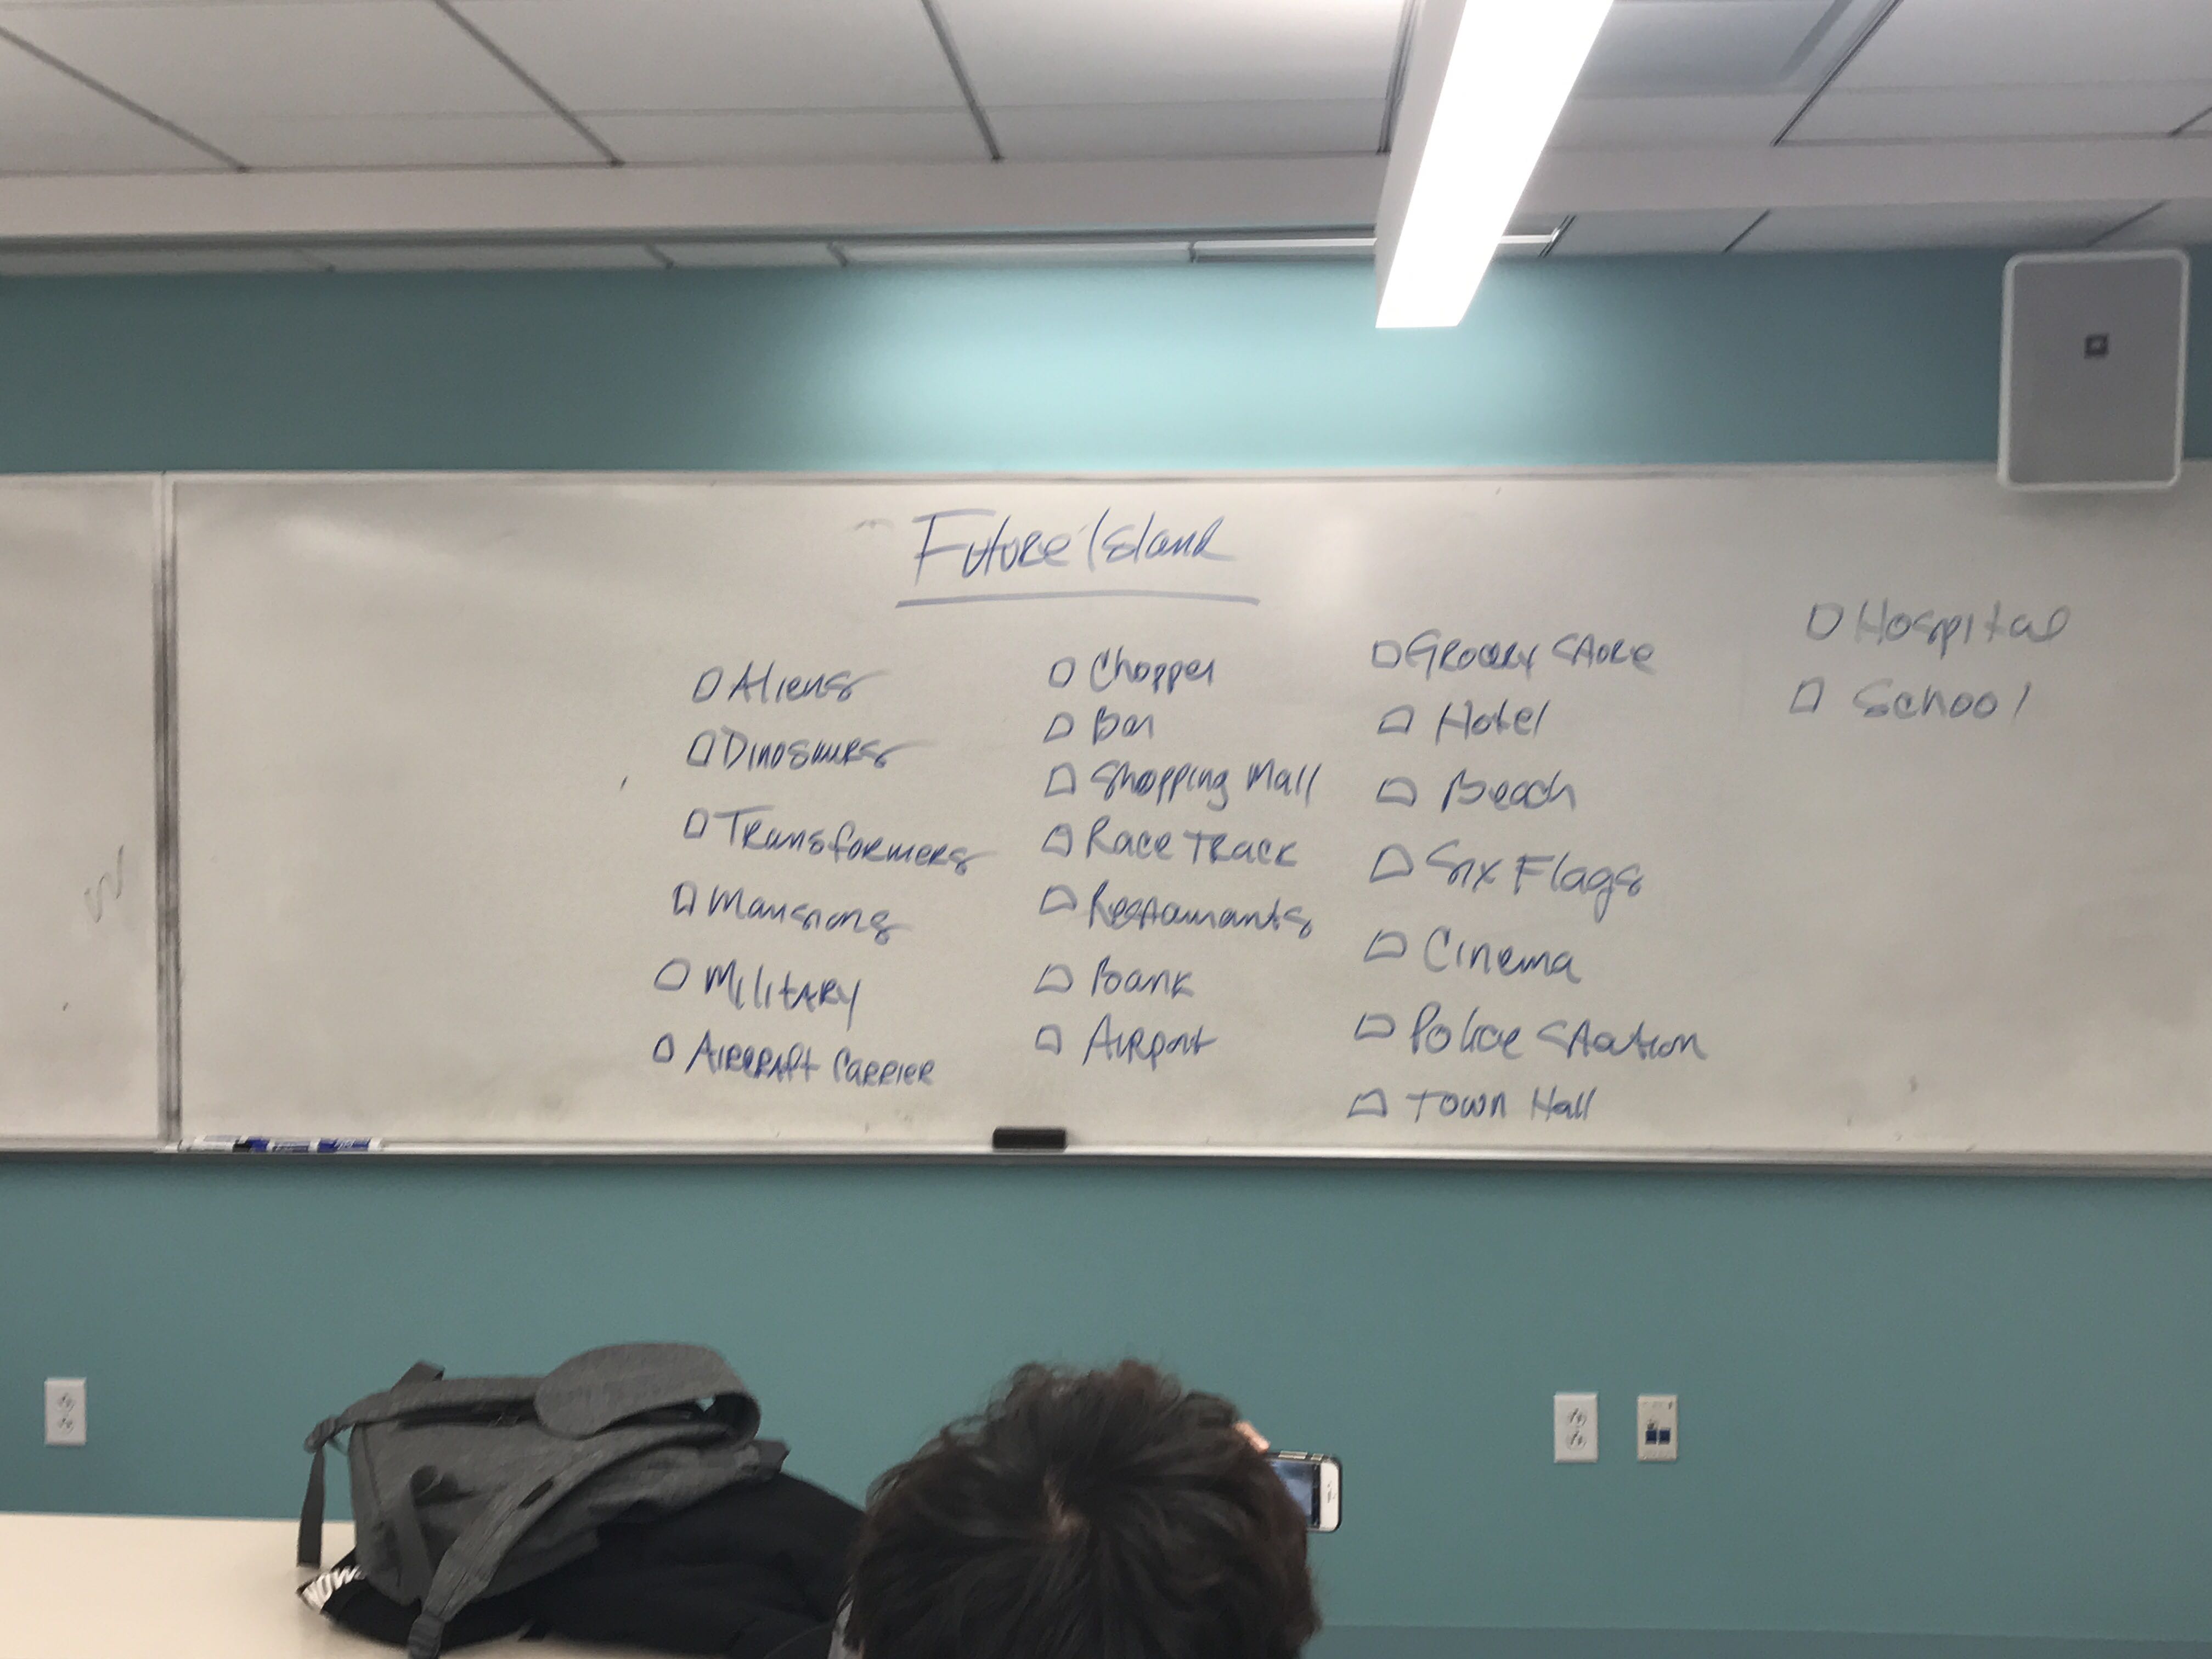 Future Island
□ Aliens
□ Dinosaurs
□ Transformers
□ Mansions
□ Military
□ Aircraft Carrier
□ Chopper
□ Bar
□ Shopping Mall
□ Race Track
□ Restaurants
□ Bank
□ Airport
□ Grocery Store
□ Hotel
□ Beach
□ Six Flags
□ Cinema
□ Police Station
□ Town Hall
□ Hospital
□ School